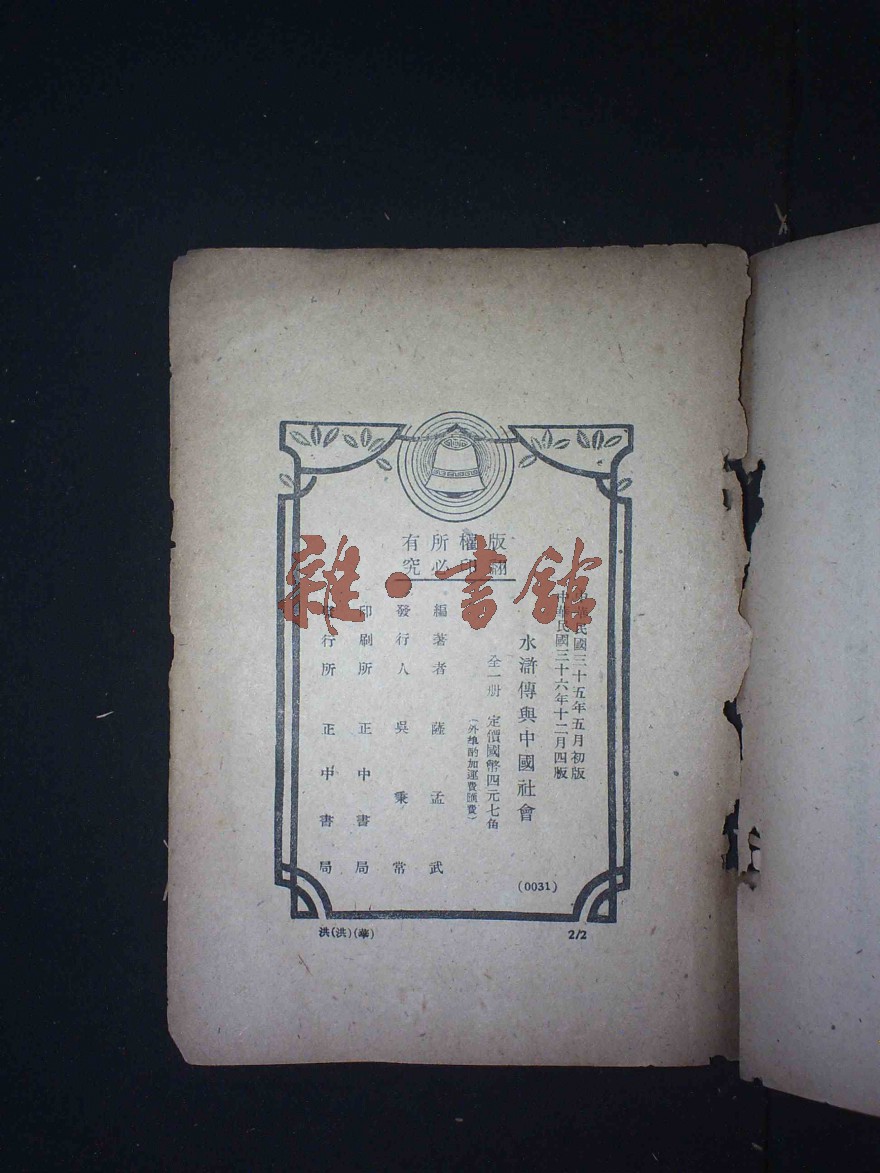 版權所有
翻印必究
中華民國三十五年五月初版
中華民國三十六年十二月四版
水滸傳與中國社會
全一册 定價國幣四元七角
(外埠酌加運費匯費)
編著者 薩孟武
發行人 吳秉常
印刷所 正中書局
發行所 正中書局
(0031)
洪(洪)(華)
2/2
雜·書館